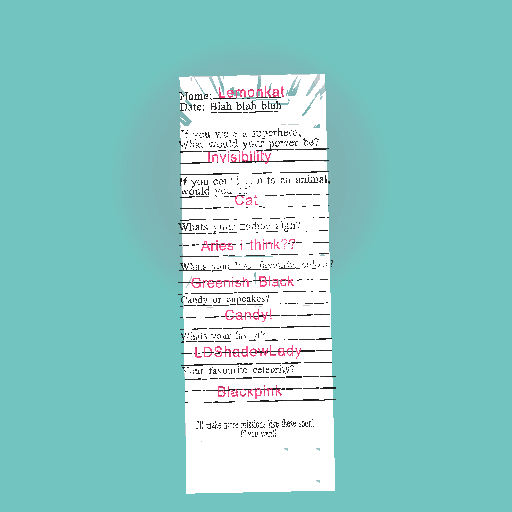 Name: Lemonkat
Date: Blah blah blah
If you were a superhero,
What would your power be?
Invisibility
If you could turn to an animal,
would you
Cat
Whats your zodiac sign?
Aries i think??
Whats your favourite
Greenish Black
Candy or cupcakes?
Candy!
Whats your
LDShadowLady
Your favourite celebrity?
Blackpink
I'll make more missions like these soon!
if you want!